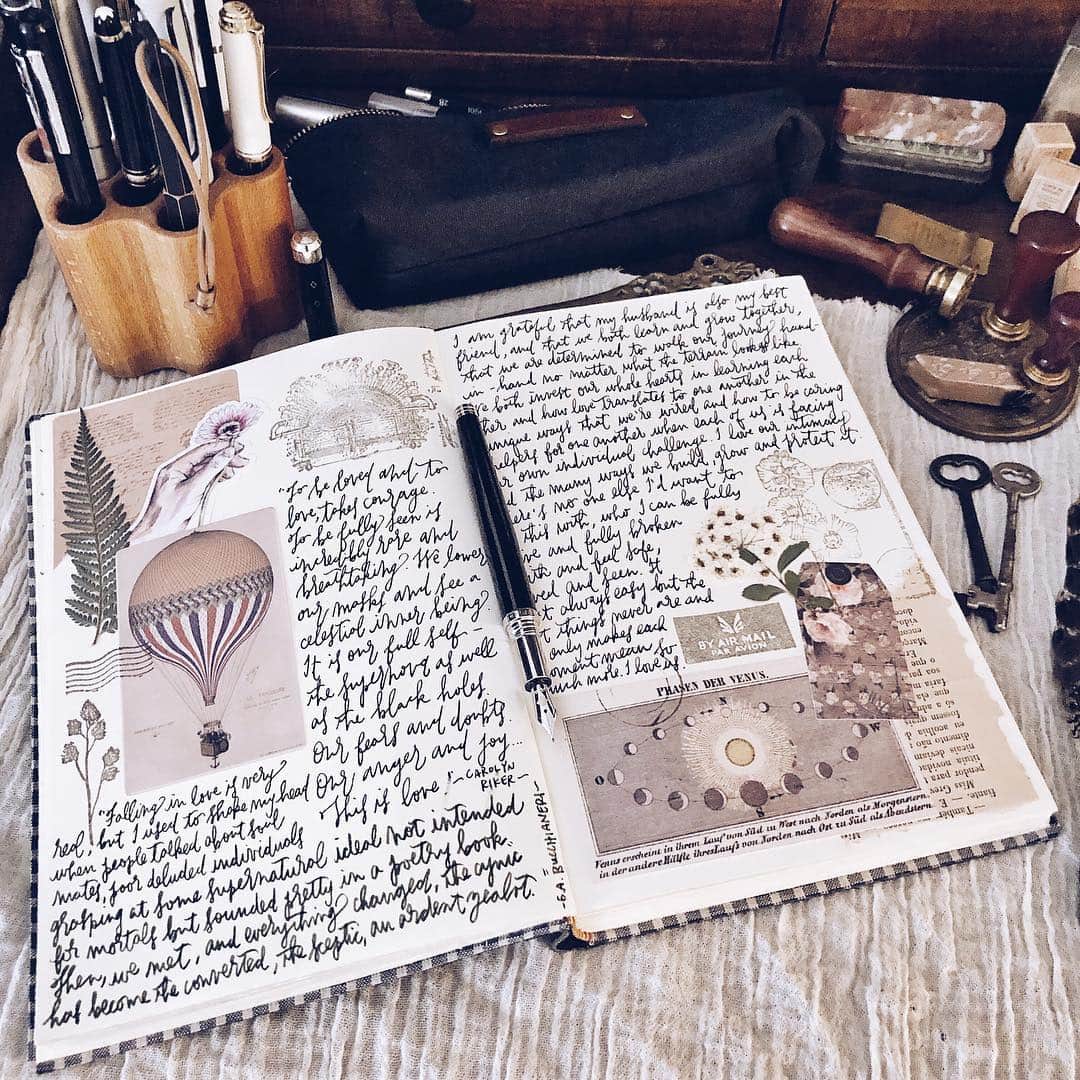 "To be loved and to
love, takes courage.
To be fully seen is
incredibly rare and
breathtaking. We lower
our masks and see a
celestial inner being.
It is our full self —
the supernova as well
as the black holes.
Our fears and doubts.
Our anger and joy...
This is love."
-CAROLYN
RIKER-
"Falling in love is very
real, but I used to shake my head
when people talked about soul
mates, poor deluded individuals
grasping at some supernatural ideal not intended
for mortals but sounded pretty in a poetry book.
Then, we met, and everything changed, the cynic
has become the converted, the skeptic, an ardent zealot.
"
-E.A. BUCCHIANERI-
I am grateful that my husband is also my best
friend, and that we both learn and grow together,
that we are determined to walk our journey hand-
in-hand no matter what the terrain looks like
both invest our whole hearts in learning each
and how love translates to one another in the
unique ways that we're wired and how to be caring
helpers for one another when each of us is facing
own individual challenge. I love our intimacy
the many ways we build grow and protect it.
there's no one else I'd want to
this with, who I can be fully
and fully broken
and feel safe,
and seen. It
always easy but the
things never are and
only makes each
moment mean so
much more. I love us.
BY AIR MAIL
PAR AVION
PHASEN DER VENUS.
N
O
W
Venus erscheint in ihrem Lauf von Süd zu West nach Norden als Morgenstern,
in der andere Hälfte ihres Laufs von Norden nach Ost zu Süd als Abendstern.